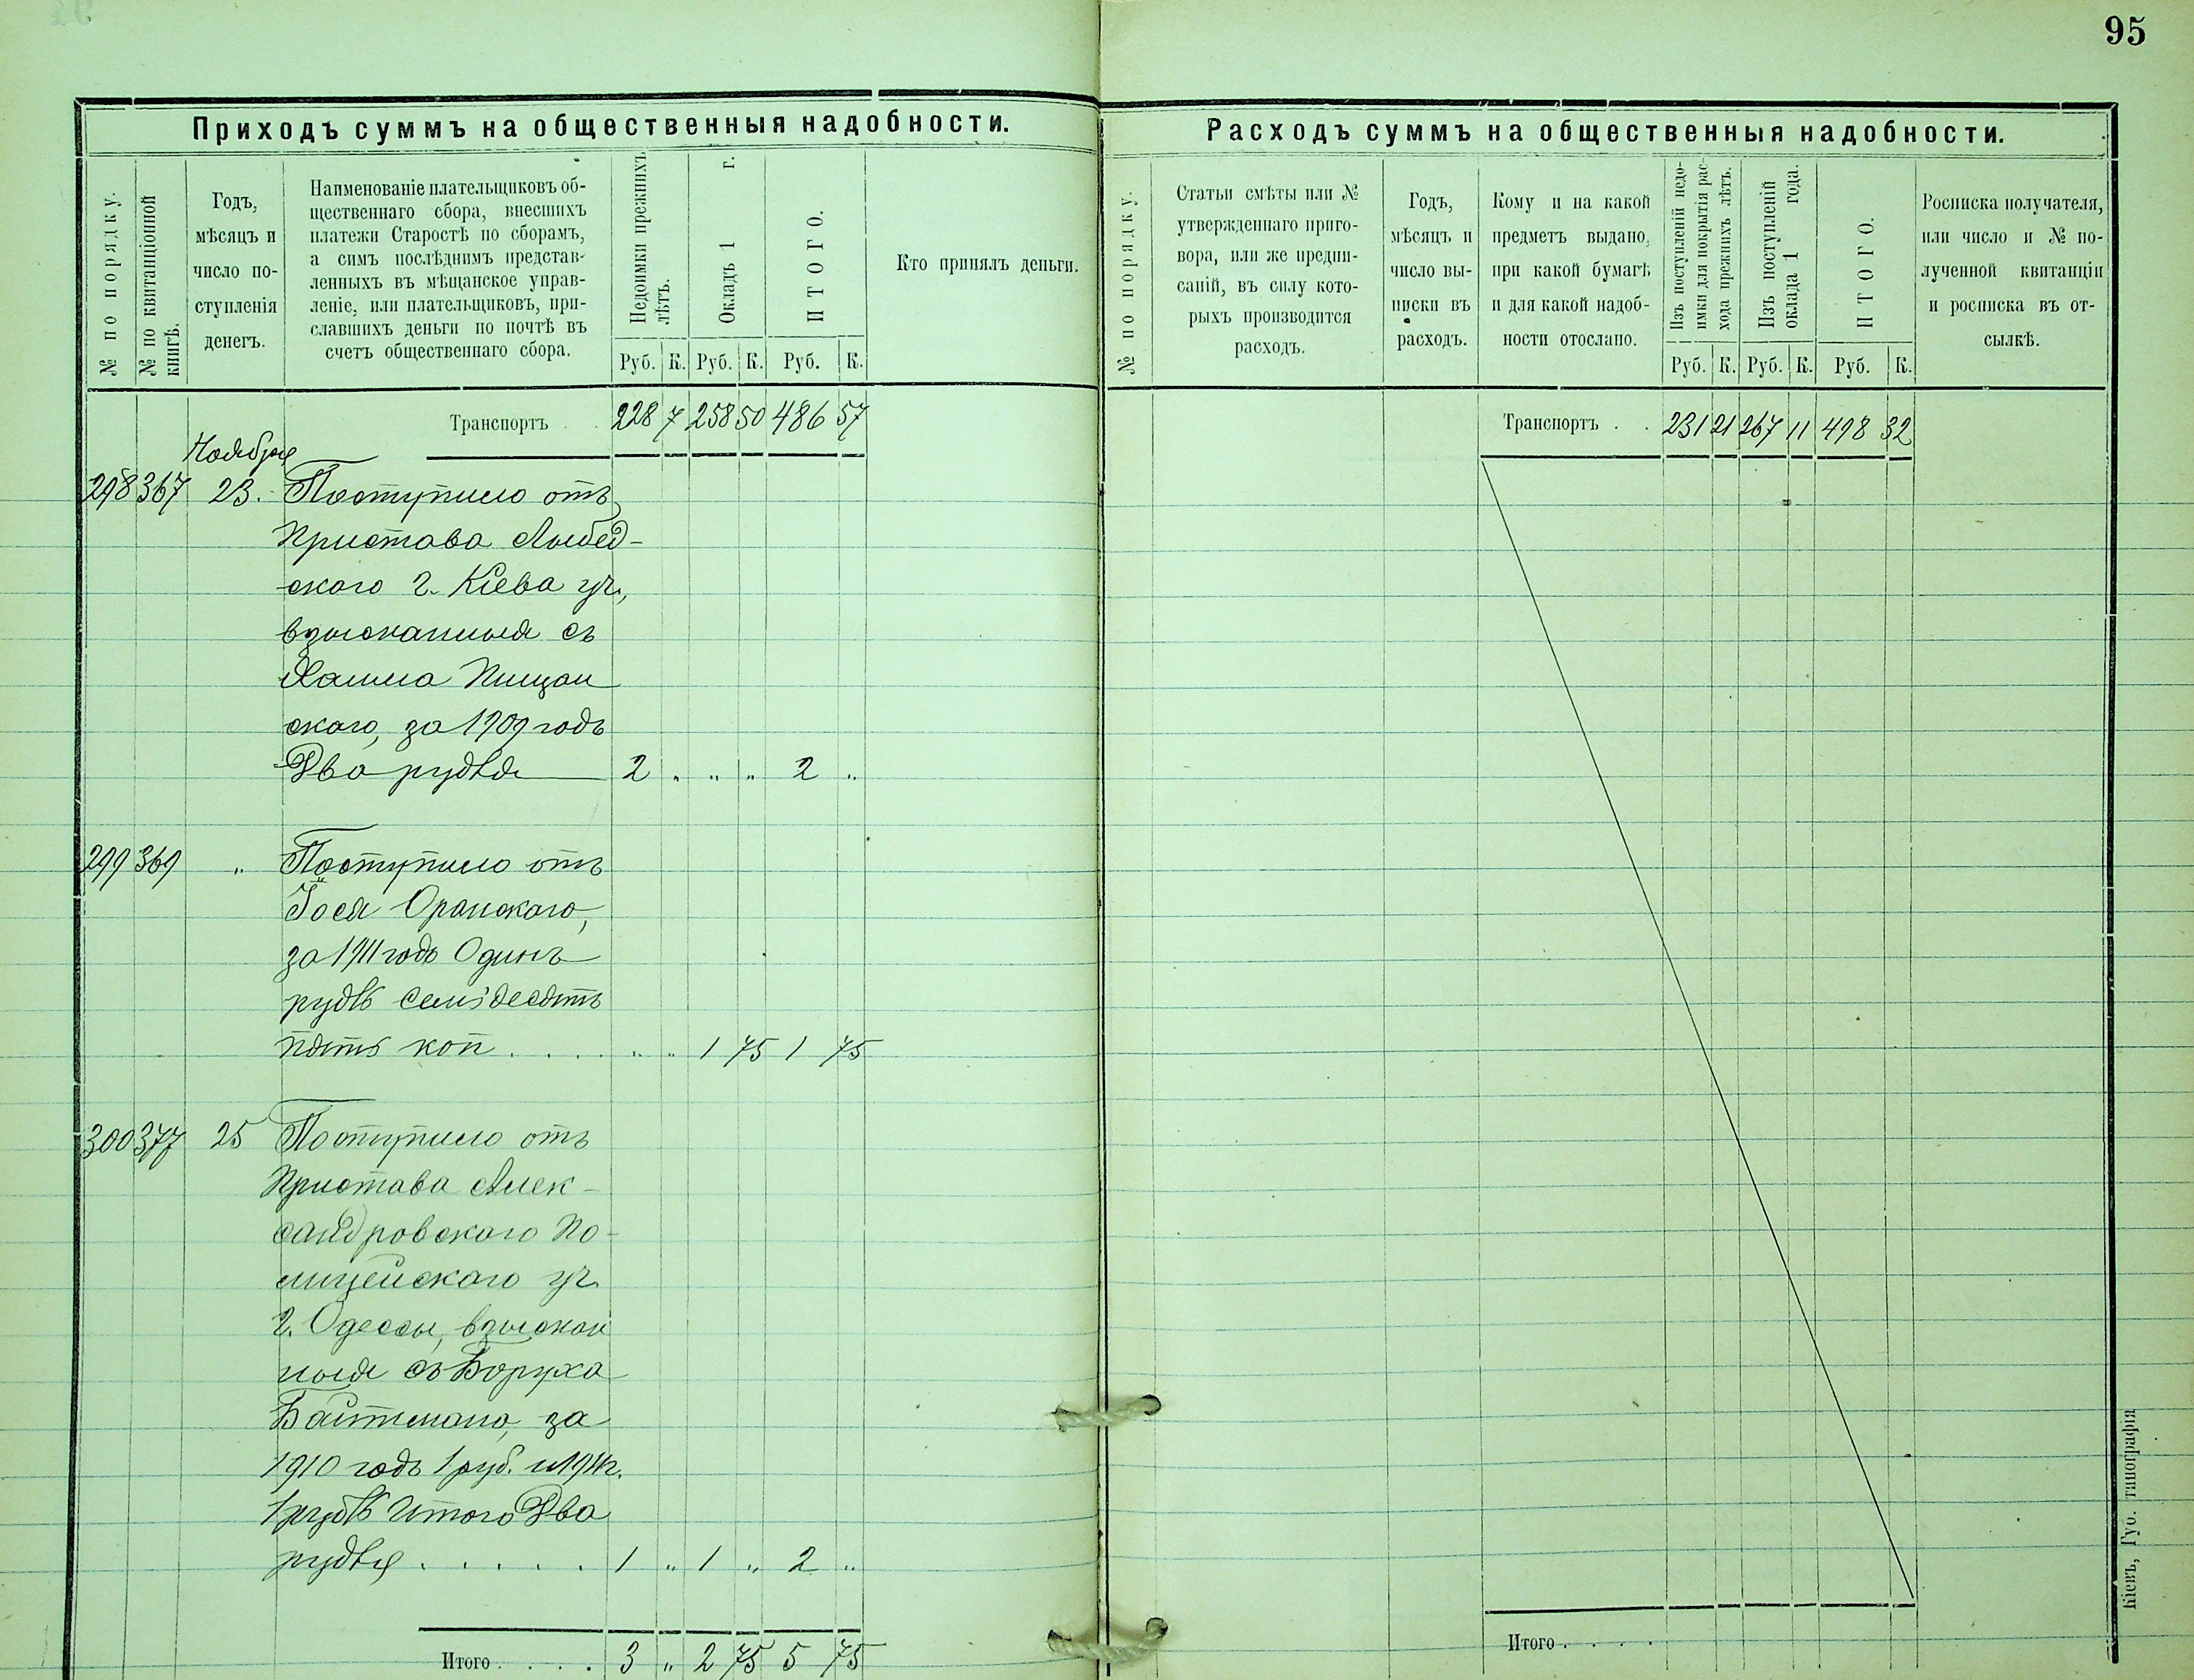 95
Приходъ суммъ на общественныя надобности.
№ по порядку.
№ по квитанціонной
книгѣ.
Годъ,
мѣсяцъ и
число по-
ступленія
денегъ.
Наименованіе плательщиковъ об-
щественнаго сбора, внесшихъ
платежи Старостѣ по сборамъ,
а симъ послѣднимъ представ-
ленныхъ въ мѣщанское управ-
леніе, или плательщиковъ, при-
славшихъ деньги по почтѣ въ
счетъ общественнаго сбора.
Недоимки прежнихъ
лѣтъ.
Окладъ 1 г.
ИТОГО.
Руб. К. Руб. К. Руб. К.
Кто принялъ деньги.
Транспортъ . . 228 7 258 50 486 57
Ноября
298 367 23. Поступило отъ
Пристава Лыбед-
ского г. Кіева уч.,
взысканныя съ
Хаима Пищан
ского, за 1909 годъ
Два рубля 2 „ „ „ 2 „
299 369 „ Поступило отъ
Іося Оранского,
за 1911 годъ Одинъ
рубль семьдесятъ
пять коп. . . . „ „ 1 75 1 75
300 377 25 Поступило отъ
Пристава Алек-
сандровского По-
лицейского уч.
г. Одессы, взыскан
ныя съ Боруха
Байтмана, за
1910 годъ 1 руб. и 1911 г.
1 рубль Итого Два
рубля . . . . . 1 „ 1 „ 2 „
Итого . . . . 3 „ 2 75 5 75
Расходъ суммъ на общественныя надобности.
№ по порядку.
Статьи смѣты или №
утвержденнаго приго-
вора, или же предпи-
саній, въ силу кото-
рыхъ производится
расходъ.
Годъ,
мѣсяцъ и
число вы-
писки въ
расходъ.
Кому и на какой
предметъ выдано,
при какой бумагѣ
и для какой надоб-
ности отослано.
Изъ поступленій недо-
имки для покрытія рас-
хода прежнихъ лѣтъ.
Изъ поступленій
оклада 1 года.
ИТОГО.
Руб. К. Руб. К. Руб. К.
Росписка получателя,
или число и № по-
лученной квитанціи
и росписка въ от-
сылкѣ.
Транспортъ . . 231 21 267 11 498 32
Итого . . . .
Кіевъ, Губ. типографія